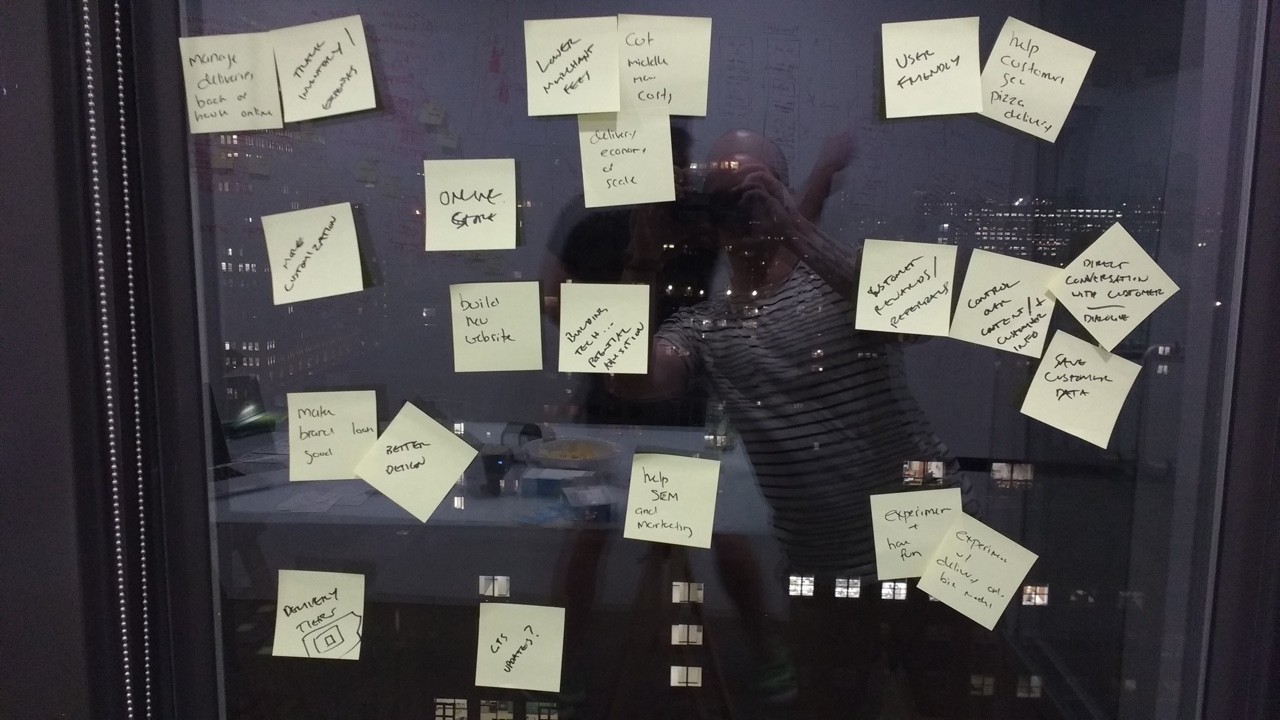 manage
deliveries
back of
house online
TRACK
INVENTORY /
EXPENSES
LOWER
MERCHANT
FEES
Cut
middle
man
costs
delivery
economy
of
scale
USER
FRIENDLY
help
customers
get
pizza
delivery
ONLINE
STORE
MORE
CUSTOMIZATION
build
new
website
BUILDING
TECH...
POTENTIAL
CUSTOMER
REWARDS /
REFERRALS
CONTROL
OVER
CONTENT /+
CUSTOMER
INFO
DIRECT
CONVERSATION
WITH CUSTOMER
DIALOGUE
SAVE
CUSTOMER
DATA
make
brand look
good
BETTER
DESIGN
help
SEM
and
marketing
experiment
+
have
fun
experiment
w/
delivery
biz model
DELIVERY
TIERS
UPDATES?